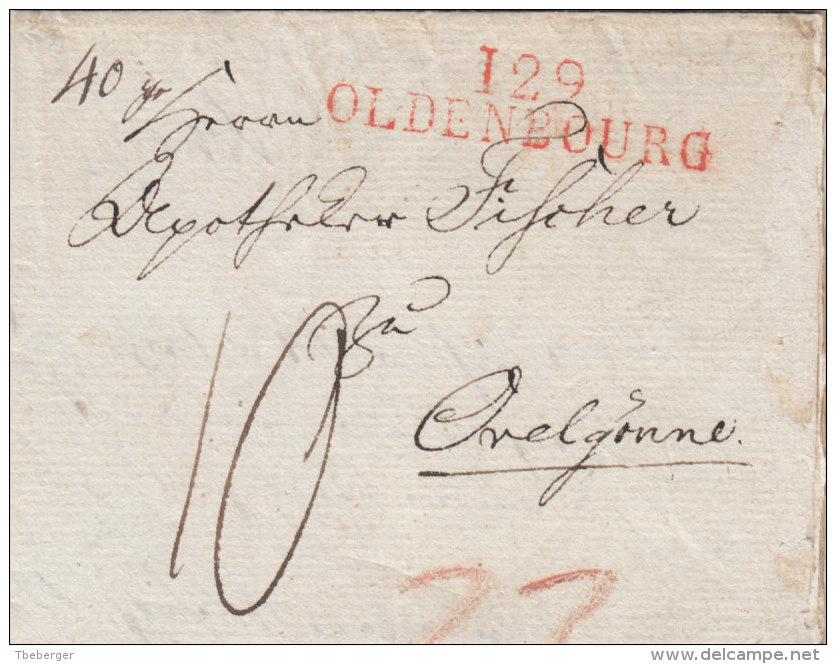 129
OLDENBOURG
40 gr
Herrn
Apotheker Fischer
zu
10
Ovelgönne.
22
Tbeberger
delcampe.net